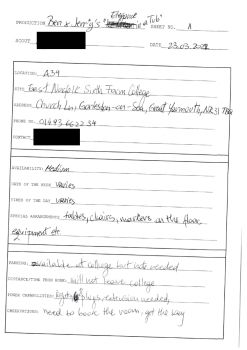 PRODUCTION Ben & Jerry's "in a Tub" SHEET NO. A
SCOUT DATE 23.03.2022
LOCATION: A39
SITE East Norfolk Sixth Form College
ADDRESS: Church Ln, Gorleston-on-Sea, Great Yarmouth, NR31 7BQ
PHONE NO. 01493 662234
CONTACT
AVAILABILITY: Medium
DAYS OF THE WEEK varies
TIMES OF THE DAY varies
SPECIAL ARRANGEMENTS tables, chairs, markers on the floor
equipment etc
PARKING: available at college but not needed
DISTANCE/TIME FROM ROAD: will not leave college
POWER CAPABILITIES: plugs, extension needed
OBSERVATIONS: need to book the room, get the key